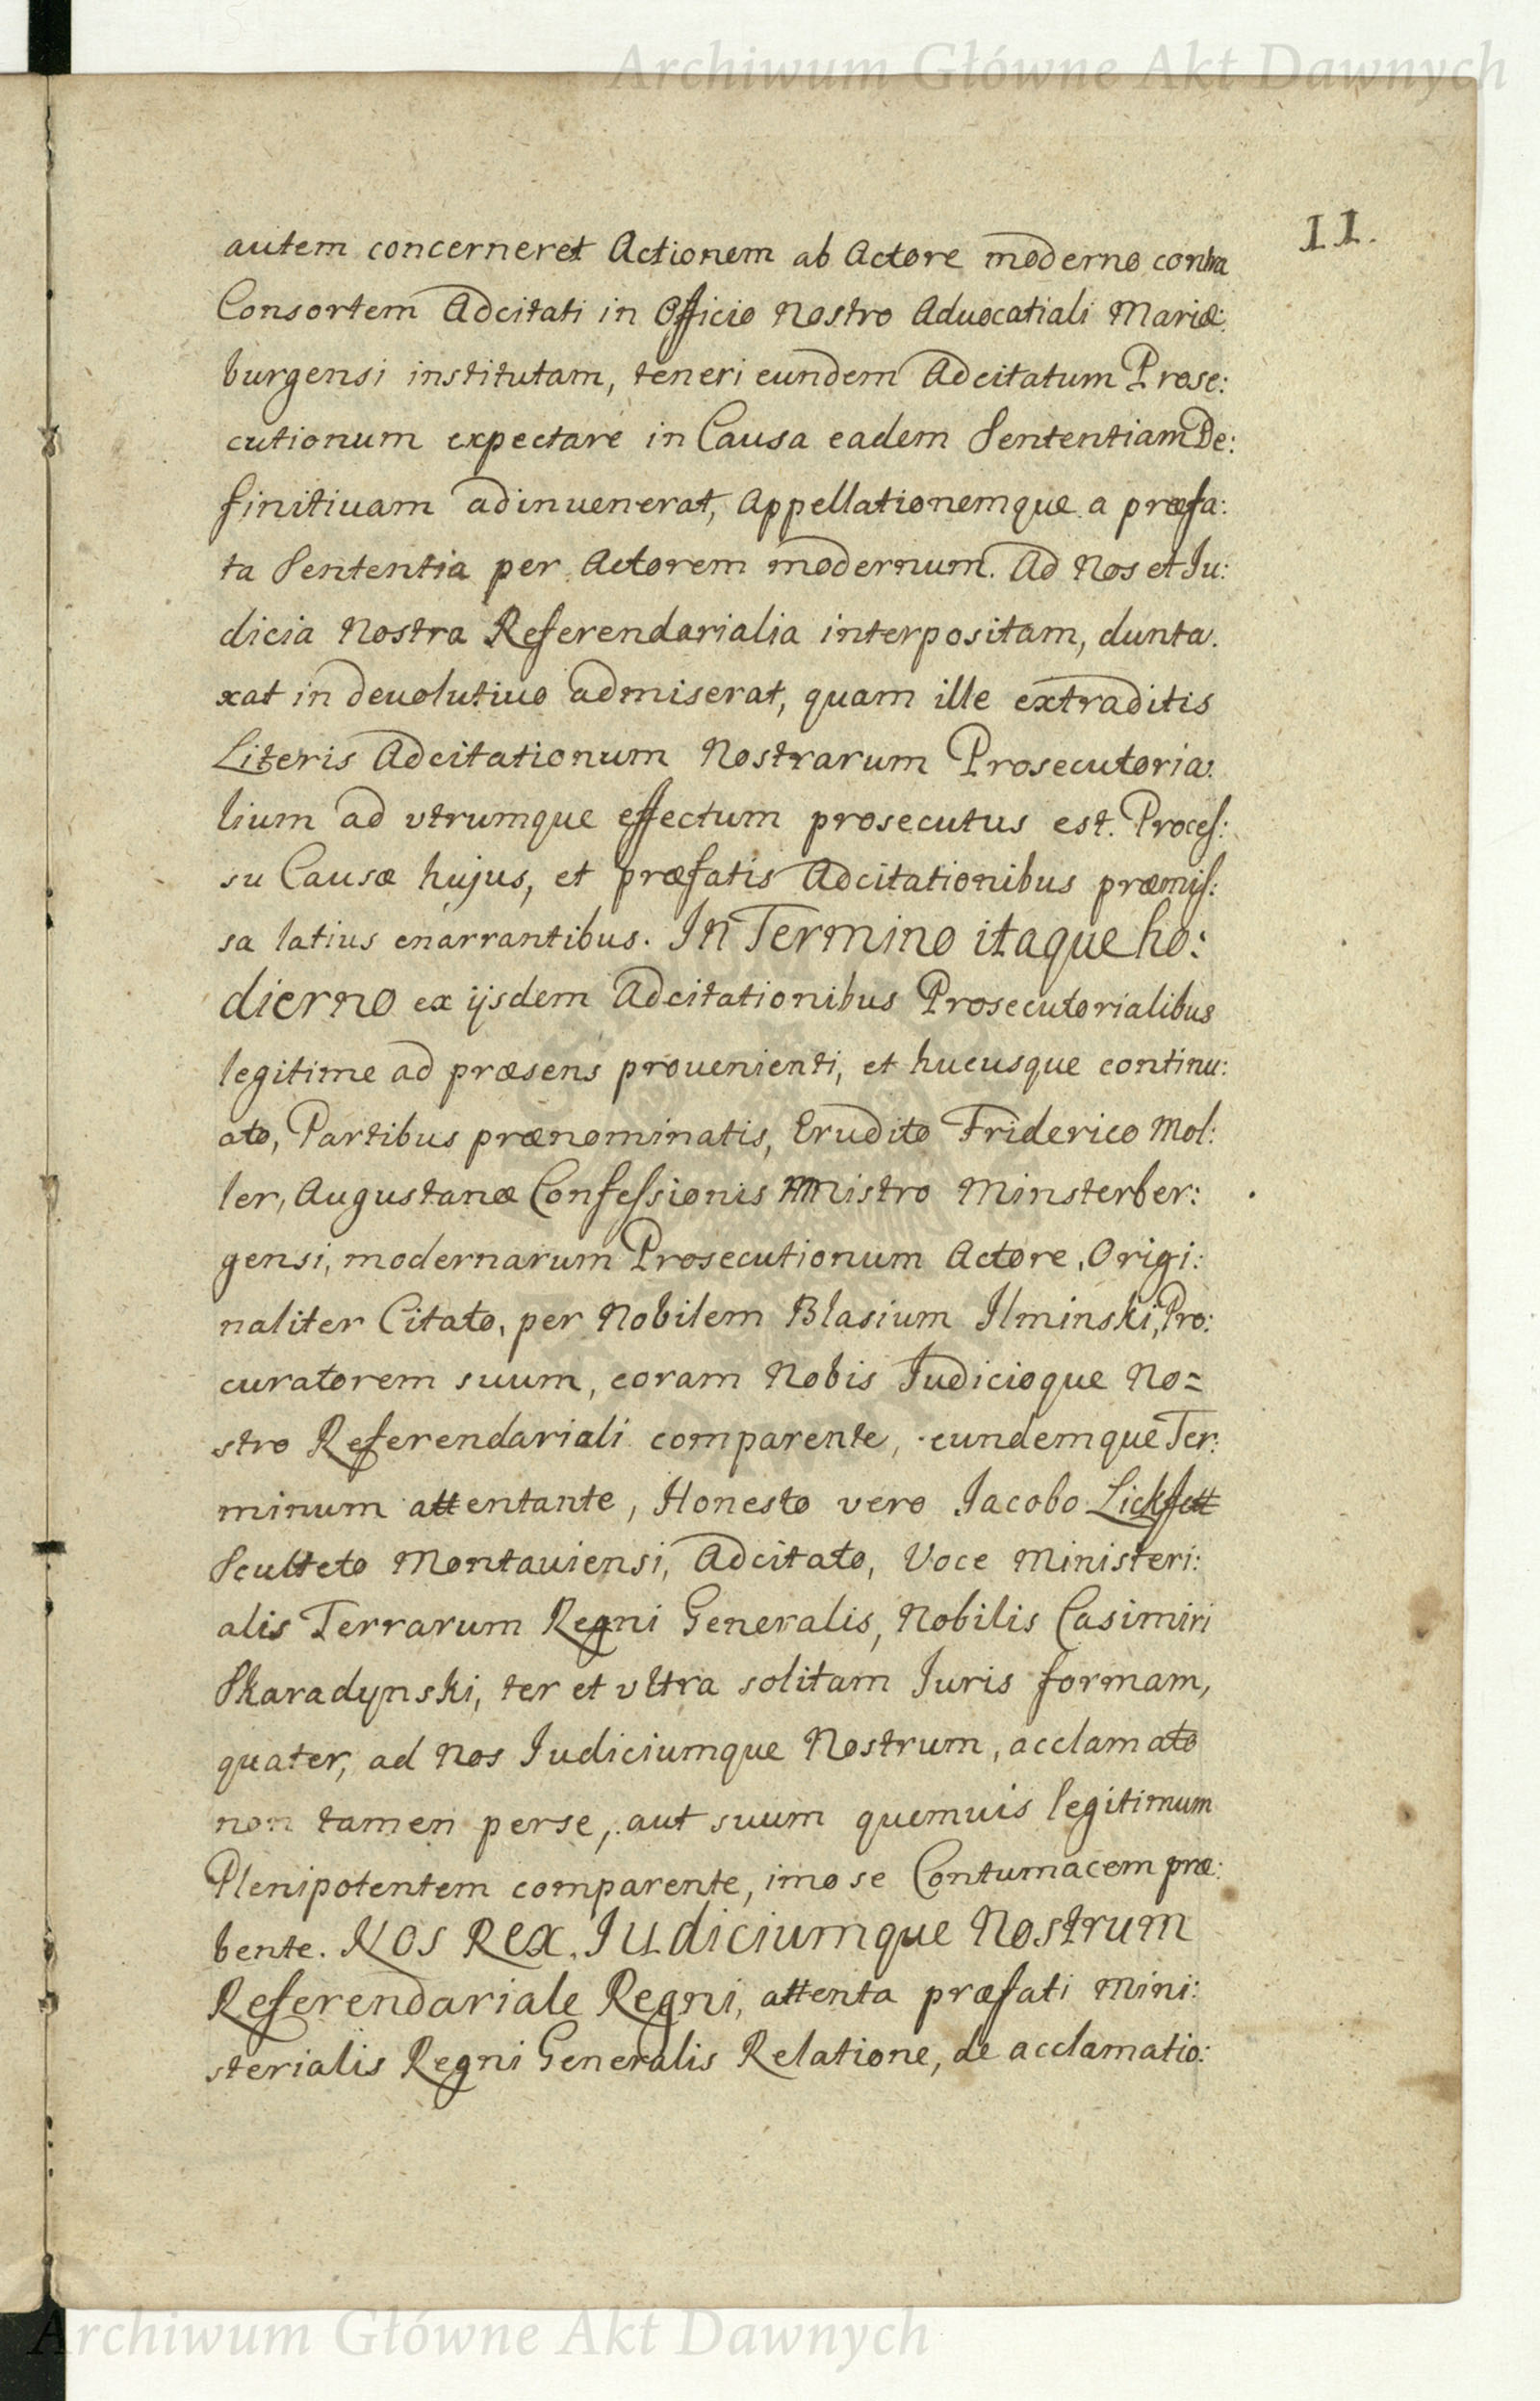 Archiwum Główne Akt Dawnych
11.
autem concerneret Actionem ab Actore moderno contra
Consortem Adcitati in Officio Nostro Aduocatiali Mariæ:
burgensi institutam, teneri eundem Adcitatum Prose:
cutionum expectare in Causa eadem Sententiam De:
finitiuam adinuenerat, Appellationemque a præfa:
ta Sententia per Actorem modernum. Ad Nos et Iu:
dicia Nostra Referendarialia interpositam, dunta:
xat in deuolutiuo admiserat, quam ille extraditis
Literis Adcitationum Nostrarum Prosecutoria:
lium ad vtrumque effectum prosecutus est. Proces:
su Causæ hujus, et præfatis Adcitationibus præmis:
sa latius enarrantibus. In Termino itaque ho:
dierno ex ijsdem Adcitationibus Prosecutorialibus
legitime ad præsens prouenienti, et hucusque continu:
ato, Partibus prænominatis, Erudito Friderico Mol:
ler, Augustanæ Confessionis Mnistro Minsterber:
gensi, modernarum Prosecutionum Actore, Origi:
naliter Citato, per Nobilem Blasium Ilminski, Pro:
curatorem suum, coram Nobis Iudicioque No=
stro Referendariali comparente, eundemque Ter:
minum attentante, Honesto vero Iacobo Lickfett
Sculteto Montauiensi, Adcitato, Voce Ministeri:
alis Terrarum Regni Generalis, Nobilis Casimiri
Skaradynski, ter et vltra solitam Iuris formam,
quater, ad Nos Iudiciumque Nostrum, acclamato
non tamen perse, aut suum quemuis legitimum
Plenipotentem comparente, imo se Contumacem præ:
bente. Nos Rex, Iudiciumque Nostrum
Referendariale Regni, attenta præfati Mini:
sterialis Regni Generalis Relatione, de acclamatio:
Archiwum Główne Akt Dawnych